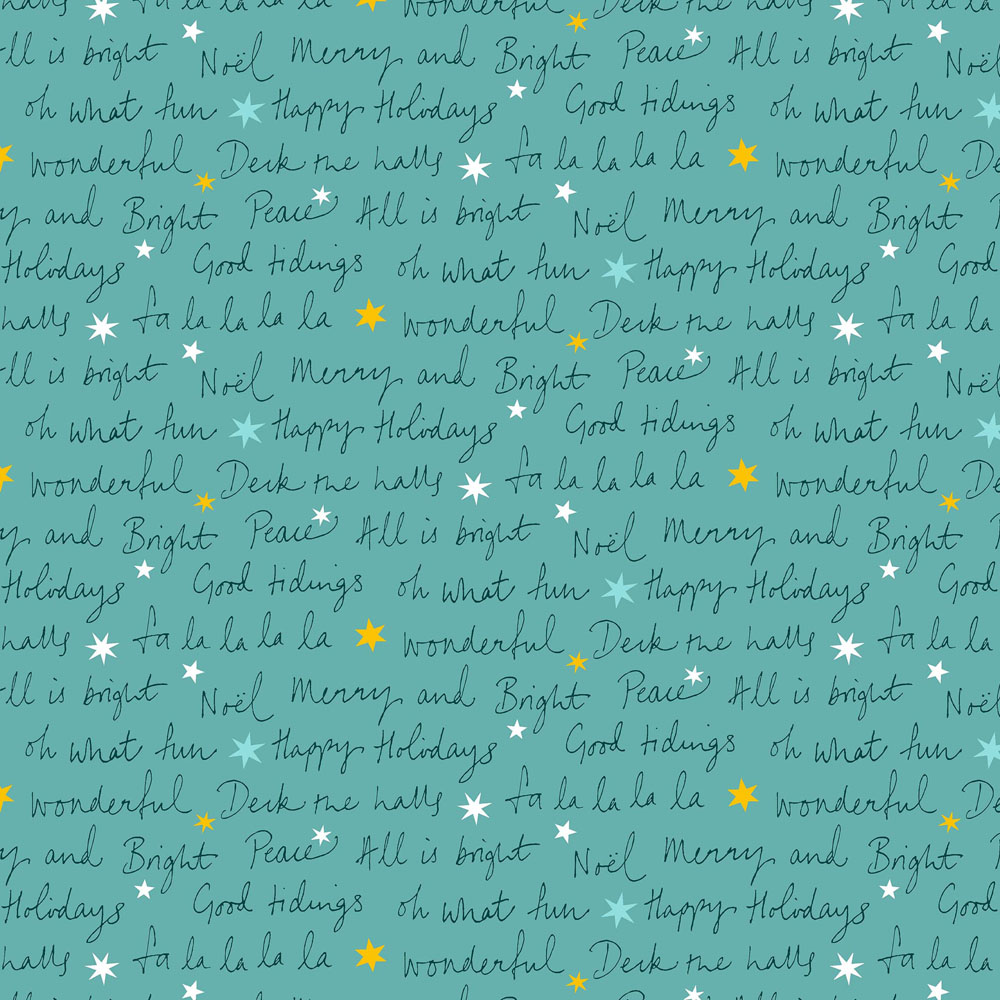 halls fa la la la la wonderful Deck the halls fa la la
ll is bright Noël Merry and Bright Peace All is bright Noël
oh what fun Happy Holidays Good tidings oh what fun
wonderful Deck the halls fa la la la la wonderful De
y and Bright Peace All is bright Noël Merry and Bright
Holidays Good tidings oh what fun Happy Holidays Good
halls fa la la la la wonderful Deck the halls fa la la
ll is bright Noël Merry and Bright Peace All is bright Noël
oh what fun Happy Holidays Good tidings oh what fun
wonderful Deck the halls fa la la la la wonderful De
y and Bright Peace All is bright Noël Merry and Bright
Holidays Good tidings oh what fun Happy Holidays Good
halls fa la la la la wonderful Deck the halls fa la la
ll is bright Noël Merry and Bright Peace All is bright Noël
oh what fun Happy Holidays Good tidings oh what fun
wonderful Deck the halls fa la la la la wonderful De
y and Bright Peace All is bright Noël Merry and Bright
Holidays Good tidings oh what fun Happy Holidays Good
halls fa la la la la wonderful Deck the halls fa la la